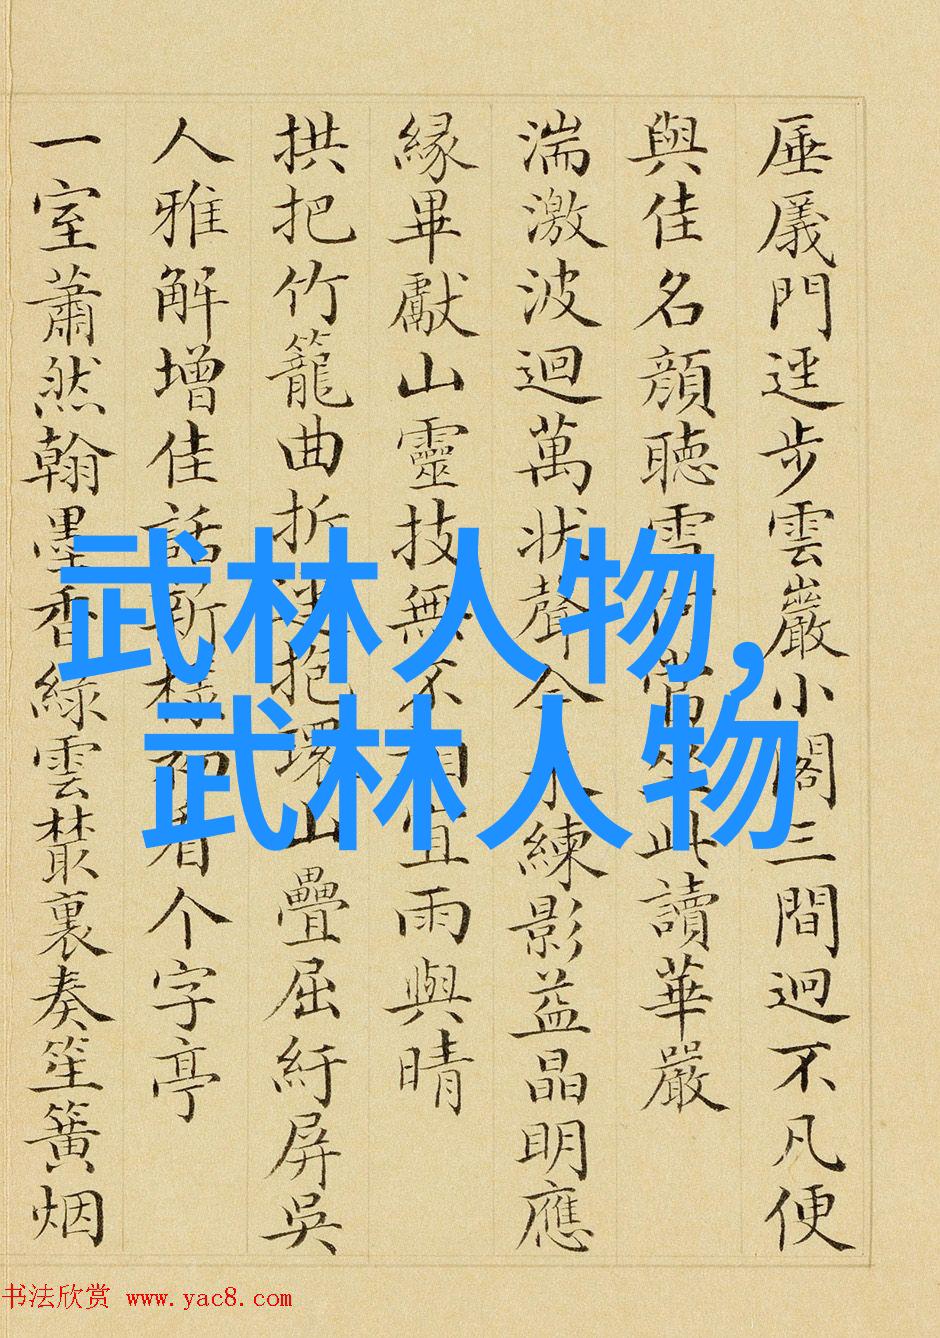 厜㕒門逕步雲巖小閣三間迥不凡便
與佳名顏聽雪何坐此讀華嚴
湍激波迴萬狀聲今來練影益晶明應
緣畢獻山靈技無不相宜雨與晴
拱把竹籠曲折抱環山疊屈紆屏吳
人雅解增佳話斯看个字亭
一室蕭然翰墨香綠雲藂裏奏笙簧烟
武林人物,
武林人物
书法欣赏 www.yac8.com